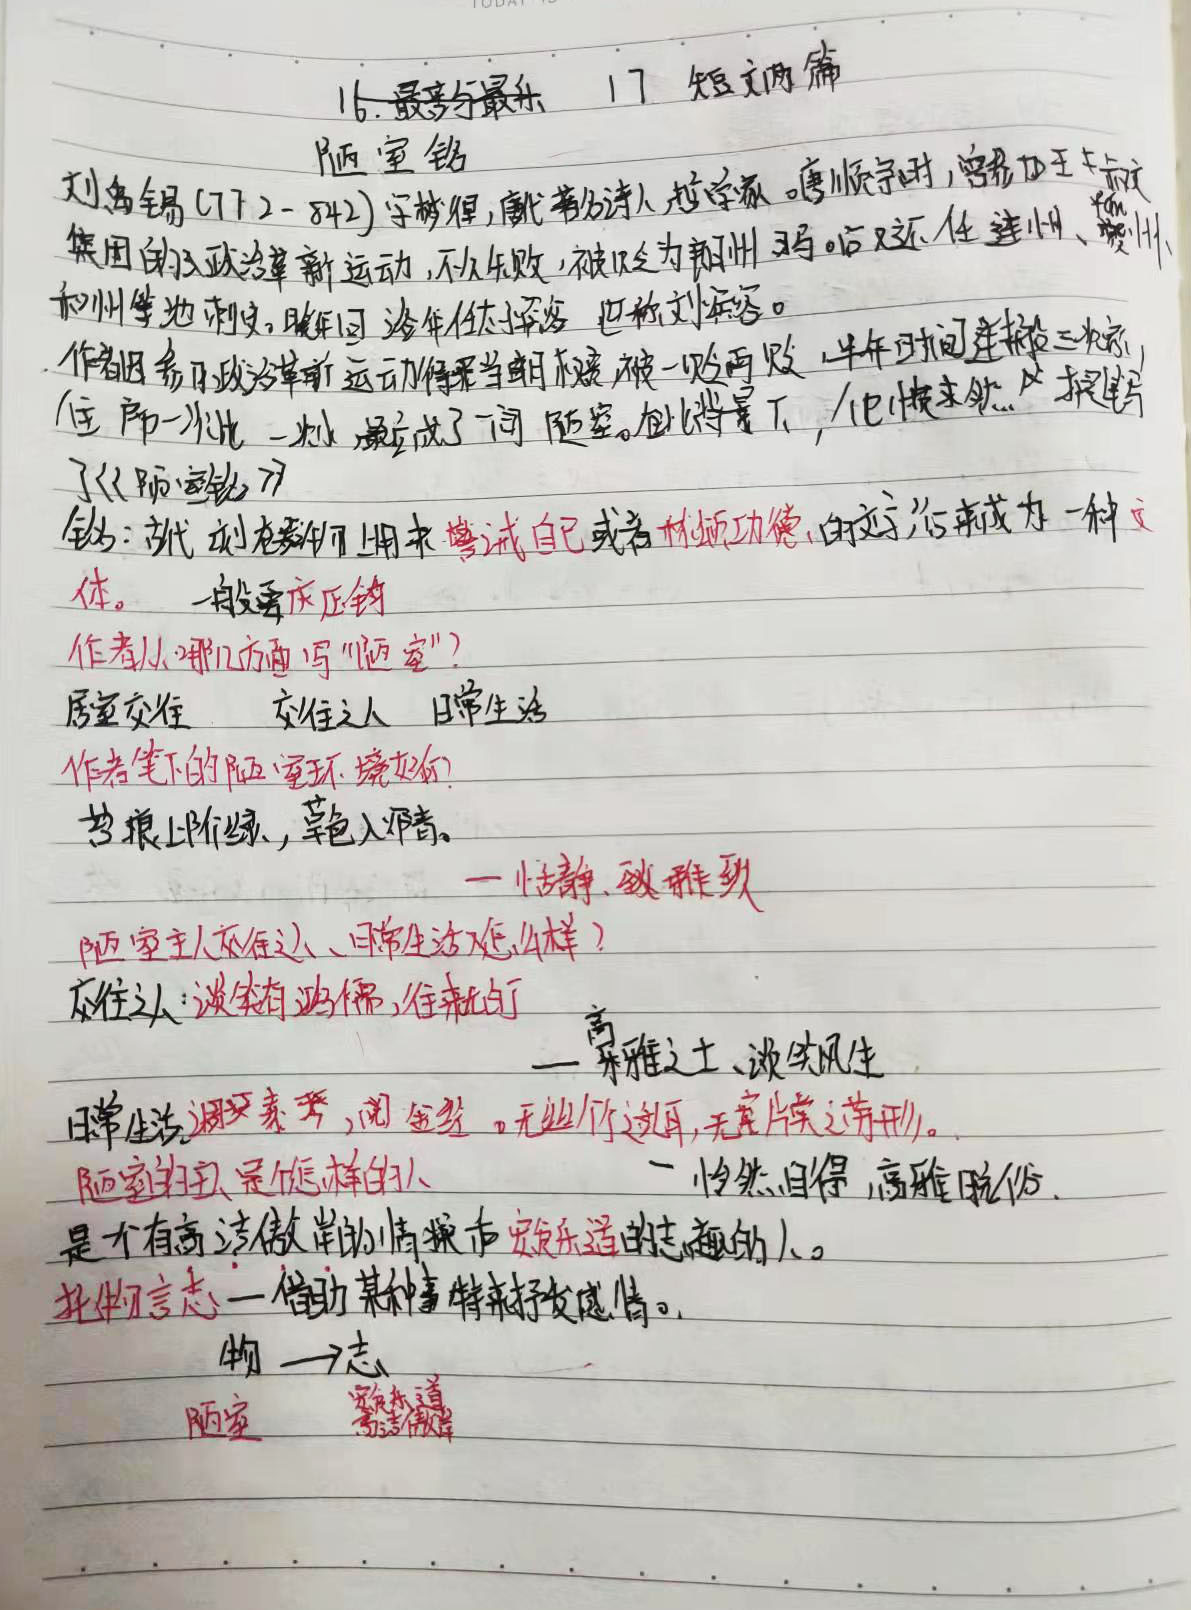 16.最苦与最乐 17 短文两篇
陋室铭
刘禹锡(772-842)字梦得,唐代著名诗人,哲学家。唐顺宗时,曾参加王叔文
集团的政治革新运动,不久失败,被贬为朗州司马。后又迁任连州、夔州、
和州等地刺史。晚年回洛阳任太子宾客 世称刘宾客。
作者因参加政治革新运动得罪当朝权贵,被一贬再贬,半年时间连搬三次家,
住房一次比一次小,最后成了一间陋室。在此背景下,他愤然提笔写
了《陋室铭》
铭:古代刻在器物上用来警诫自己或者称颂功德的文字,后来成为一种文
体。 一般要求压韵
作者从哪几方面写“陋室”?
居室交往 交往之人 日常生活
作者笔下的陋室环境如何?
苔痕上阶绿,草色入帘青。
一恬静、雅致
陋室主人交往之人、日常生活怎么样?
交往之人:谈笑有鸿儒,往来无白丁
高
—雅之士、谈笑风生
日常生活:调素琴,阅金经。无丝竹之乱耳,无案牍之劳形。
陋室的主人是个怎样的人 一怡然自得,高雅脱俗.
是个有高洁傲岸的情操和安贫乐道的志趣的人。
托物言志一借助某种事特来抒发感情。
物→志
陋室 安贫乐道
高洁傲岸